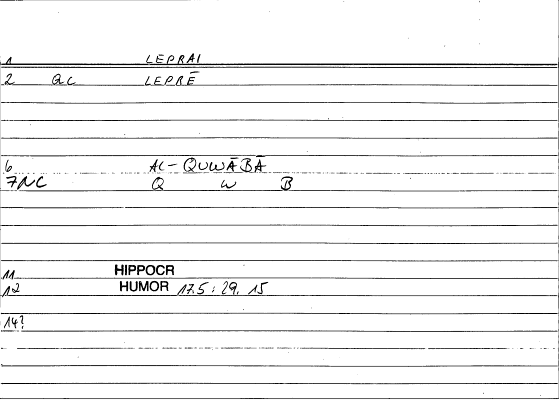 1 LEPRAI
2 QC LEPRĒ
6 AL-QUWĀBĀ
7NC Q W B
11 HIPPOCR
12 HUMOR 17.5 : 29, 15
14?